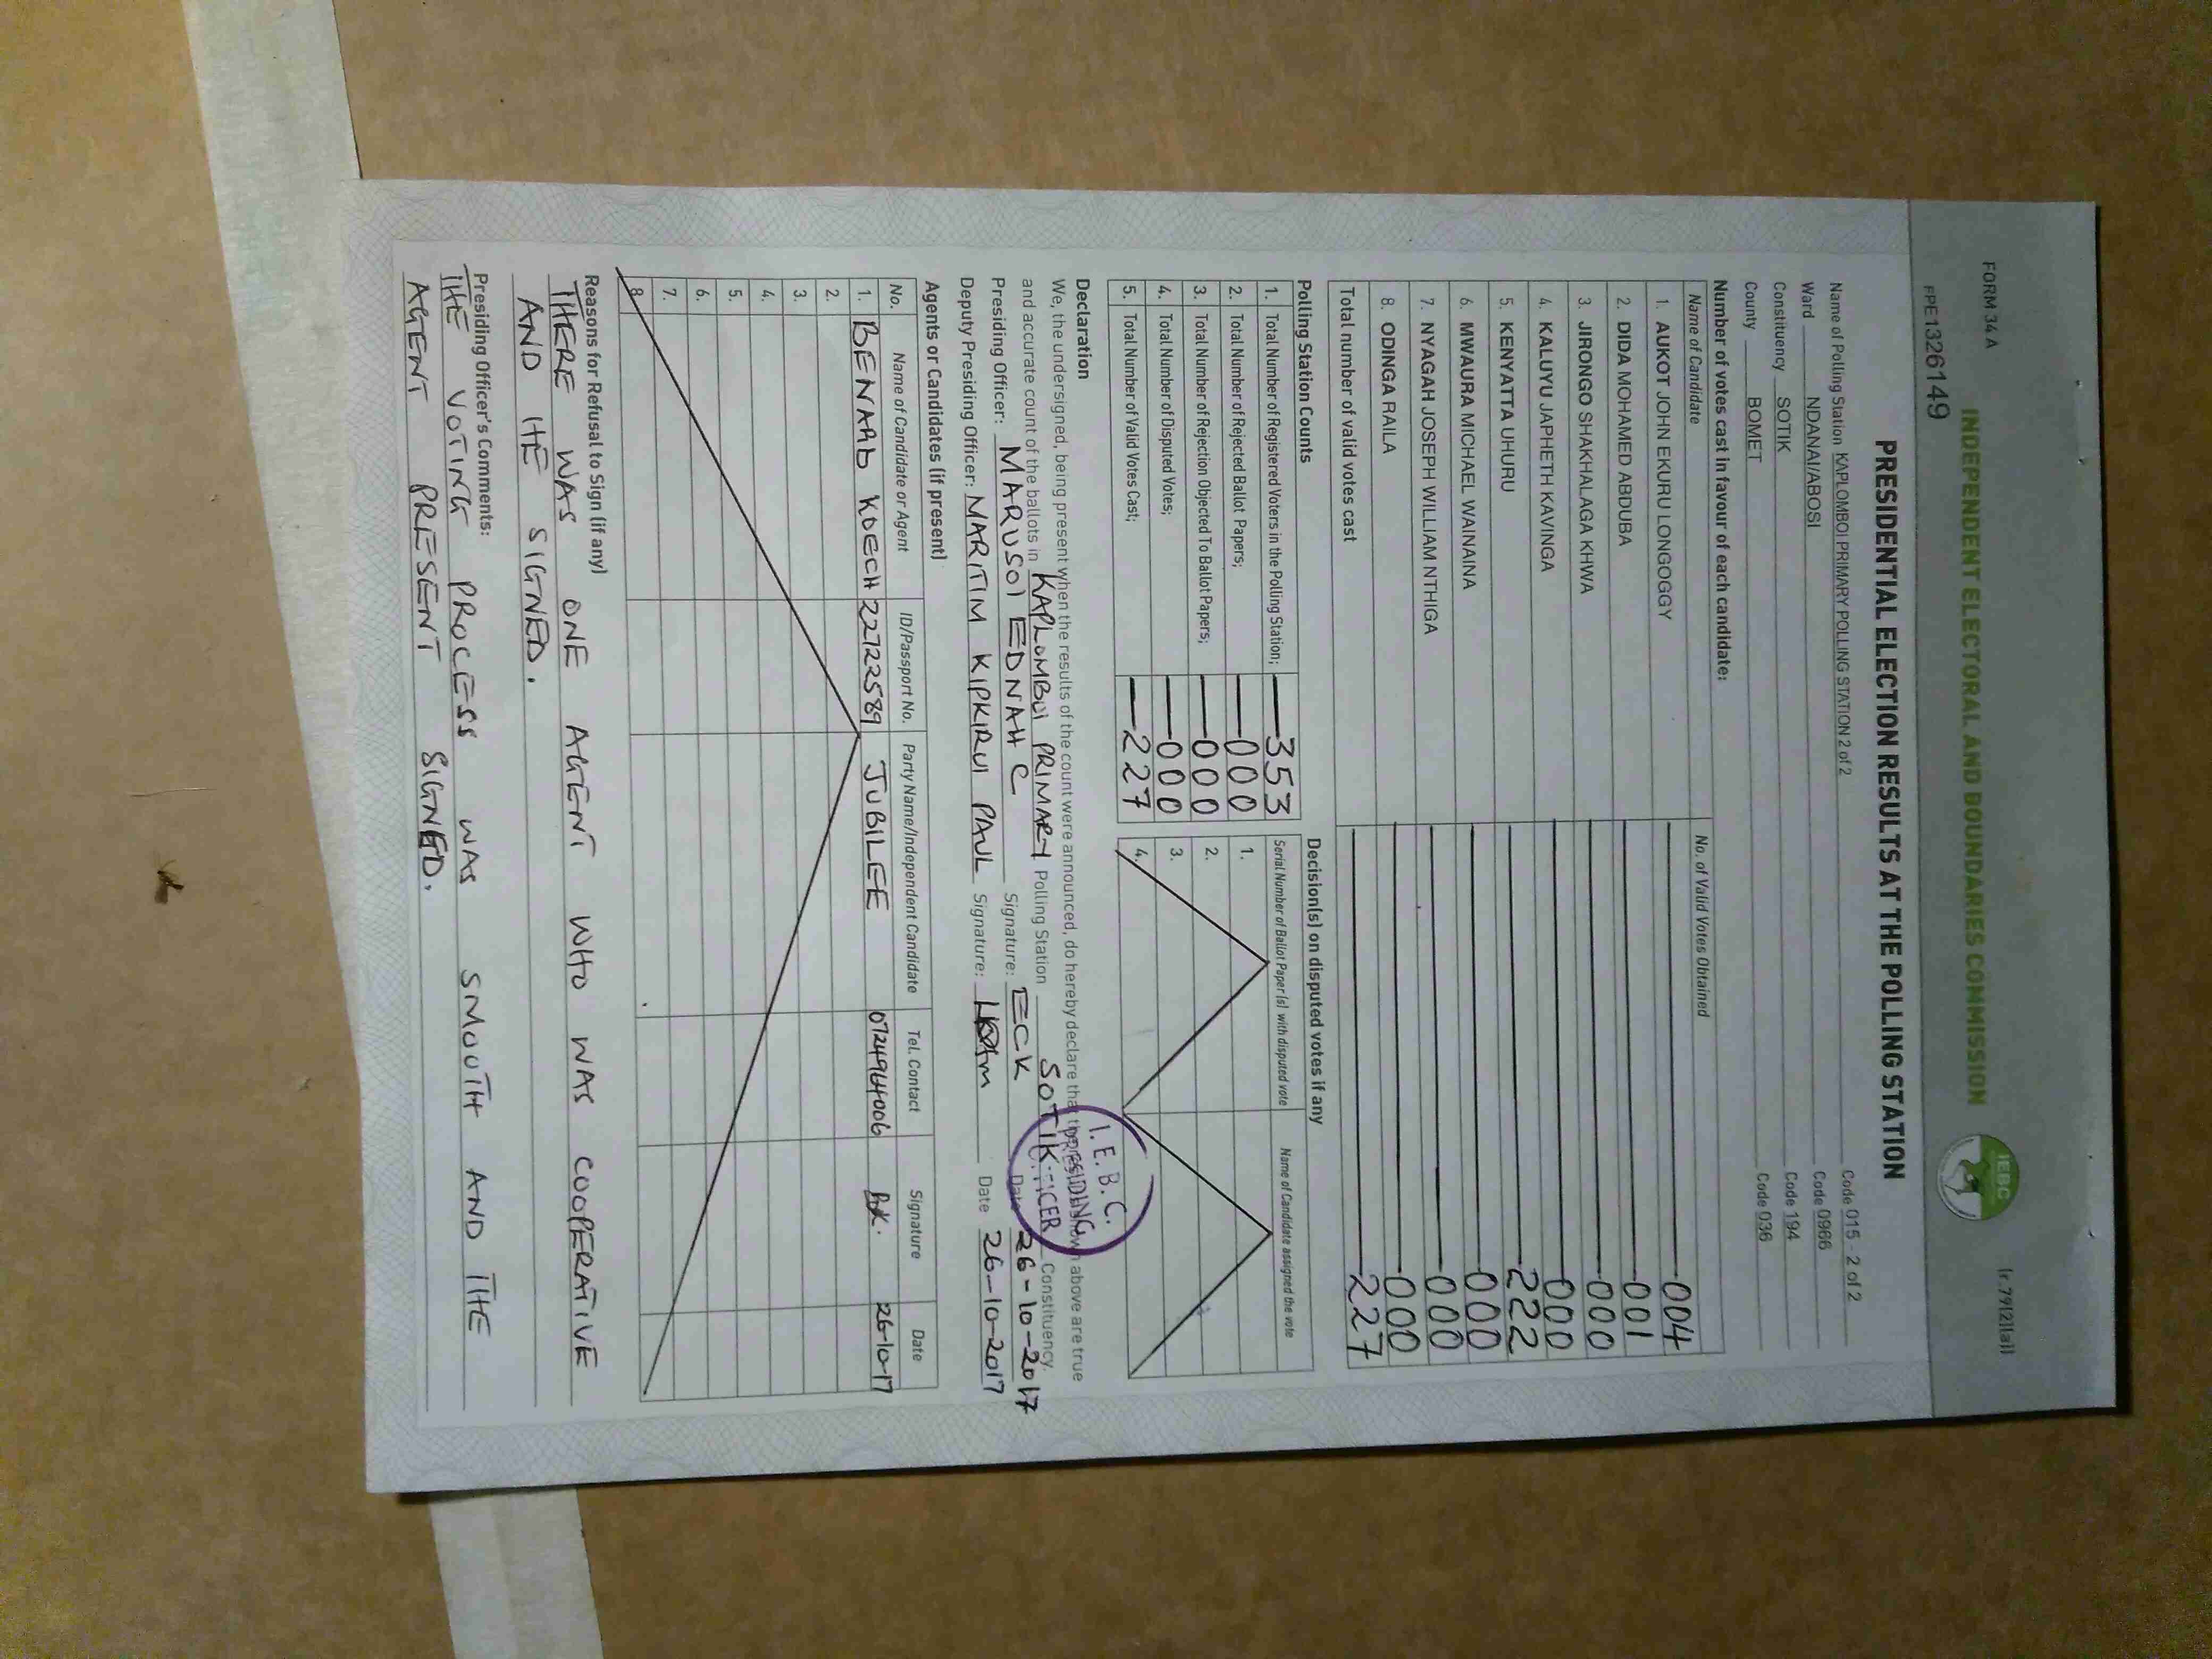 FORM 34 A
(r.79(2)(a))
INDEPENDENT ELECTORAL AND BOUNDARIES COMMISSION
IEBC
FPE1326149
PRESIDENTIAL ELECTION RESULTS AT THE POLLING STATION
Name of Polling Station KAPLOMBOI PRIMARY POLLING STATION 2 of 2 Code 015 - 2 of 2
Ward NDANAI/ABOSI Code 0966
Constituency SOTIK Code 194
County BOMET Code 036
Number of votes cast in favour of each candidate:
Name of Candidate No. of Valid Votes Obtained
1. AUKOT JOHN EKURU LONGOGGY 004
2. DIDA MOHAMED ABDUBA 001
3. JIRONGO SHAKHALAGA KHWA 000
4. KALUYU JAPHETH KAVINGA 000
5. KENYATTA UHURU 222
6. MWAURA MICHAEL WAINAINA 000
7. NYAGAH JOSEPH WILLIAM NTHIGA 000
8. ODINGA RAILA 000
Total number of valid votes cast 227
Polling Station Counts
1. Total Number of Registered Voters in the Polling Station; 353
2. Total Number of Rejected Ballot Papers; 000
3. Total Number of Rejection Objected To Ballot Papers; 000
4. Total Number of Disputed Votes; 000
5. Total Number of Valid Votes Cast; 227
Decision(s) on disputed votes if any
Serial Number of Ballot Paper (s) with disputed vote Name of Candidate assigned the vote
1.
2.
3.
4.
Declaration
We, the undersigned, being present when the results of the count were announced, do hereby declare that the results shown above are true
and accurate count of the ballots in KAPLOMBOI PRIMARY Polling Station SOTIK Constituency.
Presiding Officer: MARUSOI EDNAH C Signature: ECK Date 26-10-2017
Deputy Presiding Officer: MARITIM KIPKIRUI PAUL Signature: Date 26-10-2017
I.E.B.C.
PRESIDING
OFFICER
Agents or Candidates (if present)
No. Name of Candidate or Agent ID/Passport No. Party Name/Independent Candidate Tel. Contact Signature Date
1. BENARD KOECH 22722589 JUBILEE 0724964006 BK. 26-10-17
2.
3.
4.
5.
6.
7.
8.
Reasons for Refusal to Sign (if any)
THERE WAS ONE AGENT WHO WAS COOPERATIVE
AND HE SIGNED.
Presiding Officer's Comments:
THE VOTING PROCESS WAS SMOOTH AND THE
AGENT PRESENT SIGNED.